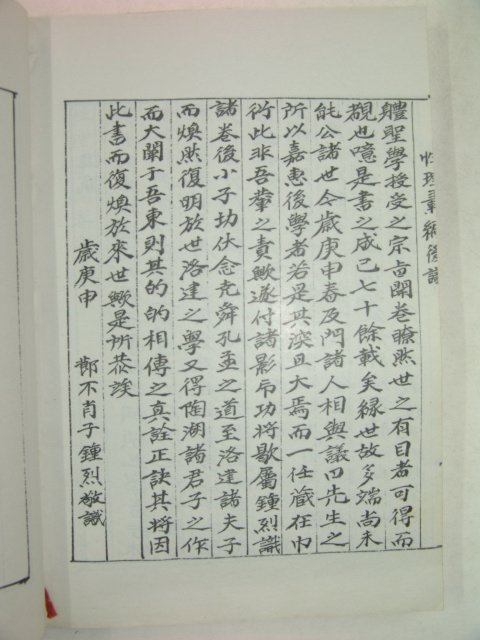 性理彙編後識
軆聖學授受之宗旨開卷瞭然世之有目者可得而
覩也噫是書之成已七十餘載矣緣世故多端尚未
能公諸世今歲庚申春及門諸人相與議曰先生之
所以嘉惠後學者若是其深且大焉而一任藏在巾
衍此非吾輩之責歟遂付諸影印功將歇屬鍾烈識
諸卷後小子切伏念堯舜孔孟之道至洛建諸夫子
而煥然復明於世洛建之學又得陶湖諸君子之作
而大闡于吾東則其的的相傳之真詮正訣其將因
此書而復煥於來世歟是所恭竢
歲庚申 不肖子鍾烈敬識